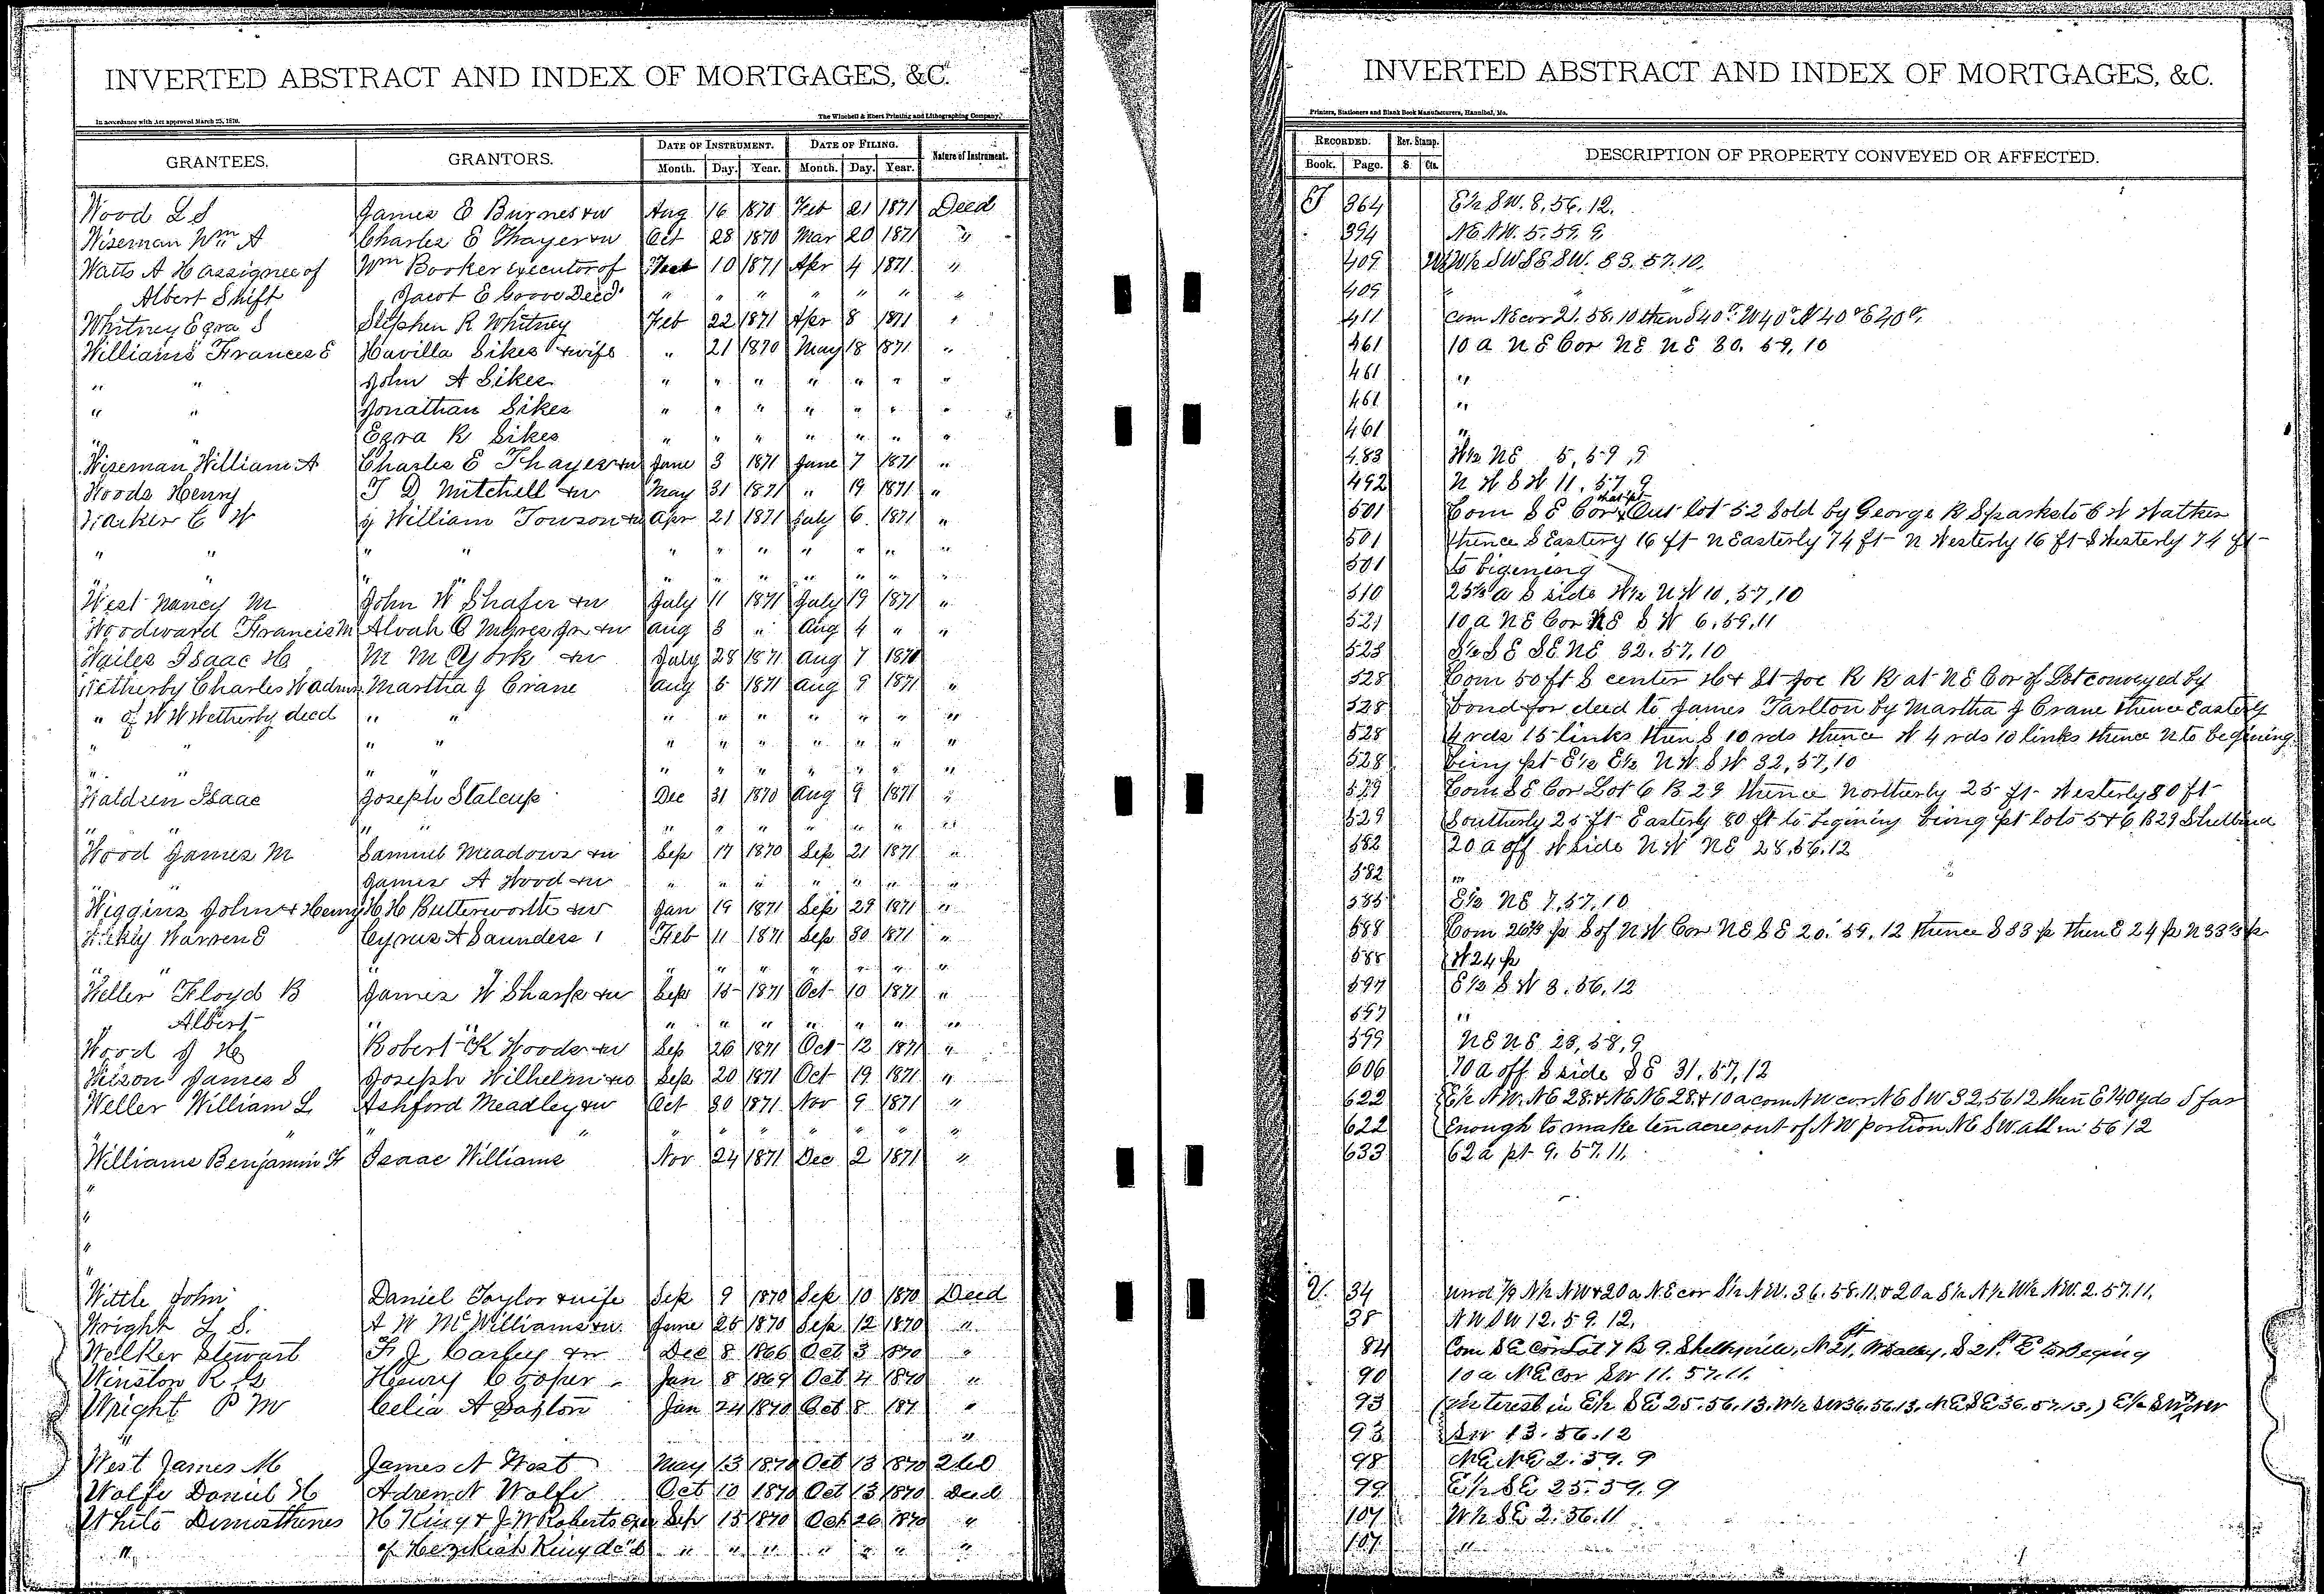 INVERTED ABSTRACT AND INDEX OF MORTGAGES, &C.
In accordance with Act approved March 25, 1870.
The Winchell & Ebert Printing and Lithographing Company,
GRANTEES. GRANTORS. DATE OF INSTRUMENT. DATE OF FILING. Nature of Instrument.
Month. Day. Year. Month. Day. Year.
Wood L S James E Burnes & w Aug 16 1870 Feb 21 1871 Deed
Wiseman Wm A Charles E Thayer & w Oct 28 1870 Mar 20 1871 "
Watts A H assignee of Wm Booker executor of 10 1871 Apr 4 1871 "
Albert Shift Jacob E Groove Decd " " " " " " "
Whitney Ezra S Stephen R Whitney Feb 22 1871 Apr 8 1871 "
Williams Frances E Havilla Sikes & wife " 21 1870 May 18 1871 "
" " John A Sikes " " " " " " "
" " Jonathan Sikes " " " " " " "
" " Ezra R Sikes " " " " " " "
Wiseman William A Charles E Thayer & w June 3 1871 June 7 1871 "
Woods Henry T D Mitchell & w May 31 1871 " 19 1871 "
Walker C W J William Towson & w Apr 21 1871 July 6 1871 "
" " " " " " " " " " "
" " " " " " " " "
West Nancy M John W Shafer & w July 11 1871 July 19 1871 "
Woodward Francis M Alvah C Myres Jr & w Aug 3 " Aug 4 " "
Wailes Isaac H M M York & w July 28 1871 Aug 7 1871
Wetherby Charles W admr Martha J Crane Aug 5 1871 Aug 9 1871 "
" of W W Wetherby decd " " " " " " " " "
" " " " " " " " " " "
" " " " " " " " " " "
Waldren Isaac Joseph Stalcup Dec 31 1870 Aug 9 1871 "
" " " " " " " " " " "
Wood James M Samuel Meadows & w Sep 17 1870 Sep 21 1871 "
" " James A Wood & w " " " " " " "
Wiggins John & Henry H H Butterworth & w Jan 19 1871 Sep 29 1871 "
Wickly Warren E Cyrus A Saunders Feb 11 1871 Sep 30 1871 "
" " " " " " " " " "
Weller Floyd B James W Sharp & w Sep 15 1871 Oct 10 1871 "
" Albert " " " " " " " " "
Wood J H Robert K Woods & w Sep 26 1871 Oct 12 1871 "
Wilson James S Joseph Wilhelm & w Sep 20 1871 Oct 19 1871 "
Weller William L Ashford Meadley & w Oct 30 1871 Nov 9 1871 "
" " " " " " " " " " "
Williams Benjamin F Isaac Williams Nov 24 1871 Dec 2 1871 "
"
"
"
"
Wittle John Daniel Taylor & wife Sep 9 1870 Sep 10 1870 Deed
Wright L S. A W McWilliams & w. June 25 1870 Sep 12 1870 "
Welker Stewart F J Carley & w Dec 8 1866 Oct 3 1870 "
Winston R G Henry Cooper Jan 8 1869 Oct 4 1870 "
Wright P M Celia A Saxton Jan 24 1870 Oct 8 187 "
" "
West James M James N West May 13 1870 Oct 13 1870
Wolfe Daniel H Adren N Wolfe Oct 10 1870 Oct 13 1870 Deed
White Demosthenes H King & J W Roberts exrs Sep 15 1870 Oct 26 1870 "
" of Hezekiah King dec'd " " " " " " "
INVERTED ABSTRACT AND INDEX OF MORTGAGES, &C.
Printers, Stationers and Blank Book Manufacturers, Hannibal, Mo.
RECORDED. Rev. Stamp. DESCRIPTION OF PROPERTY CONVEYED OR AFFECTED.
Book. Page. $ Cts.
T 364 E½ SW. 8, 56, 12.
394 NE NW. 5. 59. 9.
409 W½ SW SE SW. 33. 57. 10.
409 " "
411 Com NE cor 21. 58. 10 then S 40 W 40 N 40 E 40
461 10 a NE Cor NE NE 30. 59, 10
461 "
461 "
461 "
483 W½ NE 5, 59, 9
492 N W S W 11. 57, 9
501 Com S E Cor that pt Out lot 52 Sold by George R Sparks to C W Walker
501 thence S Eastery 16 ft N Easterly 74 ft N Westerly 16 ft S Westerly 74 ft
501 to bigening
510 25½ a S side W½ NW 10, 57, 10
521 10 a NE Cor NE S W 6, 59, 11
523 S½ S E SE NE 32. 57, 10
528 Com 50 ft S center H & St Joe R R at NE Cor of Lot conveyed by
528 bond for deed to James Tarlton by Martha J Crane thence Easterly
528 4 rds 15 links then S 10 rds thence W 4 rds 10 links thence N to begining
528 being pt E½ E½ NW SW 32, 57, 10
529 Com SE Cor Lot 6 B 29 thence Northerly 25 ft Westerly 80 ft
529 Southerly 25 ft Easterly 80 ft to begining being pt lots 5 & 6 B 29 Shelbina
582 20 a off W side NW NE 28, 56, 12
582 "
585 E½ NE 7, 57, 10
588 Com 26⅔ p S of NW Cor NE SE 20. 59, 12 thence S 33 p then E 24 p N 33⅓ p
588 W 24 p
597 E½ S W 3. 56, 12
597 "
599 NE NE 23, 58, 9
606 70 a off S side SE 31. 57, 12
622 E½ NW. NE 28. & NE NE 28. & 10 a com NW cor NE SW 32. 56 12 then E 140 yds S far
622 Enough to make ten acres out of NW portion NE SW all in 56 12
633 62 a pt 9. 57. 11.
U. 34 und 1/9 N½ NW & 20 a NE cor S½ NW. 36. 58. 11. & 20 a S½ N½ W½ NW. 2. 57. 11.
38 NW SW 12. 59. 12.
84 Com SE Cor Lot 7 B 9. Shelbyville, N 21 ft, W alley, S 21 ft E to Beging
90 10 a NE Cor SW 11. 57. 11.
93 (interest in E½ SE 25. 56. 13. W½ SW 36. 56. 13. NE SE 36. 57. 13.) E½ SW
93 SW 13. 56. 12
98 NE NE 2. 59. 9
99 E½ SE 25. 59. 9
107 W½ SE 2. 56. 11
107 "